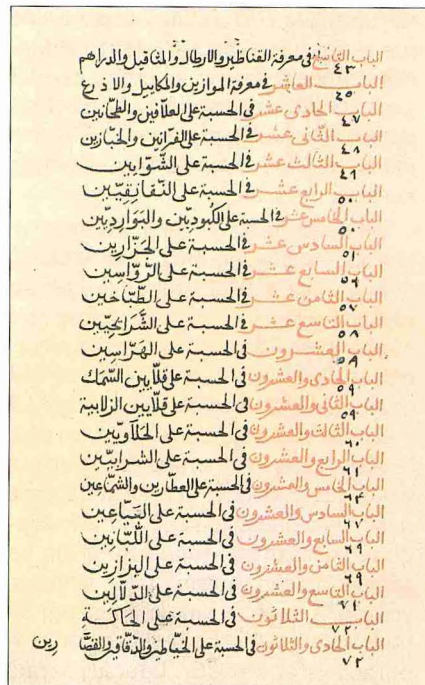 الباب التاسع في معرفة القناطير والارطال والمثاقيل والدراهم
٤٣
الباب العاشر في معرفة الموازين والمكاييل والاذرع
٤٥
الباب الحادى عشر في الحسبة على العلافين والطحانين
٤٧
الباب الثانى عشر في الحسبة على الفرانين والخبازين
٤٨
الباب الثالث عشر في الحسبة على الشوايين
٤٩
الباب الرابع عشر في الحسبة على النقانقيين
٥٠
الباب الخامس عشر في الحسبة على الكبوديين والبوارديين
٥٠
الباب السادس عشر في الحسبة على الجزارين
٥١
الباب السابع عشر في الحسبة على الرواسين
٥٦
الباب الثامن عشر في الحسبة على الطباخين
٥٧
الباب التاسع عشر في الحسبة على الشرايحيين
٥٨
الباب العشرون في الحسبة على الهراسين
٥٨
الباب الحادى والعشرون في الحسبة على قلايين السمك
٥٩
الباب الثانى والعشرون في الحسبة على قلايين الزلابية
٥٩
الباب الثالث والعشرون في الحسبة على الحلاويين
٦٠
الباب الرابع والعشرون في الحسبة على الشرابيين
٦١
الباب الخامس والعشرون في الحسبة على العطارين والشماعين
٦٤
الباب السادس والعشرون في الحسبة على البياعين
٦٧
الباب السابع والعشرون في الحسبة على اللبانين
٦٩
الباب الثامن والعشرون في الحسبة على البزازين
٦٩
الباب التاسع والعشرون في الحسبة على الدلالين
٧١
الباب الثلاثون في الحسبة على الحاكة
٧٢
الباب الحادى والثلاثون في الحسبة على الخياطين والدقاقين والقصارين
٧٢